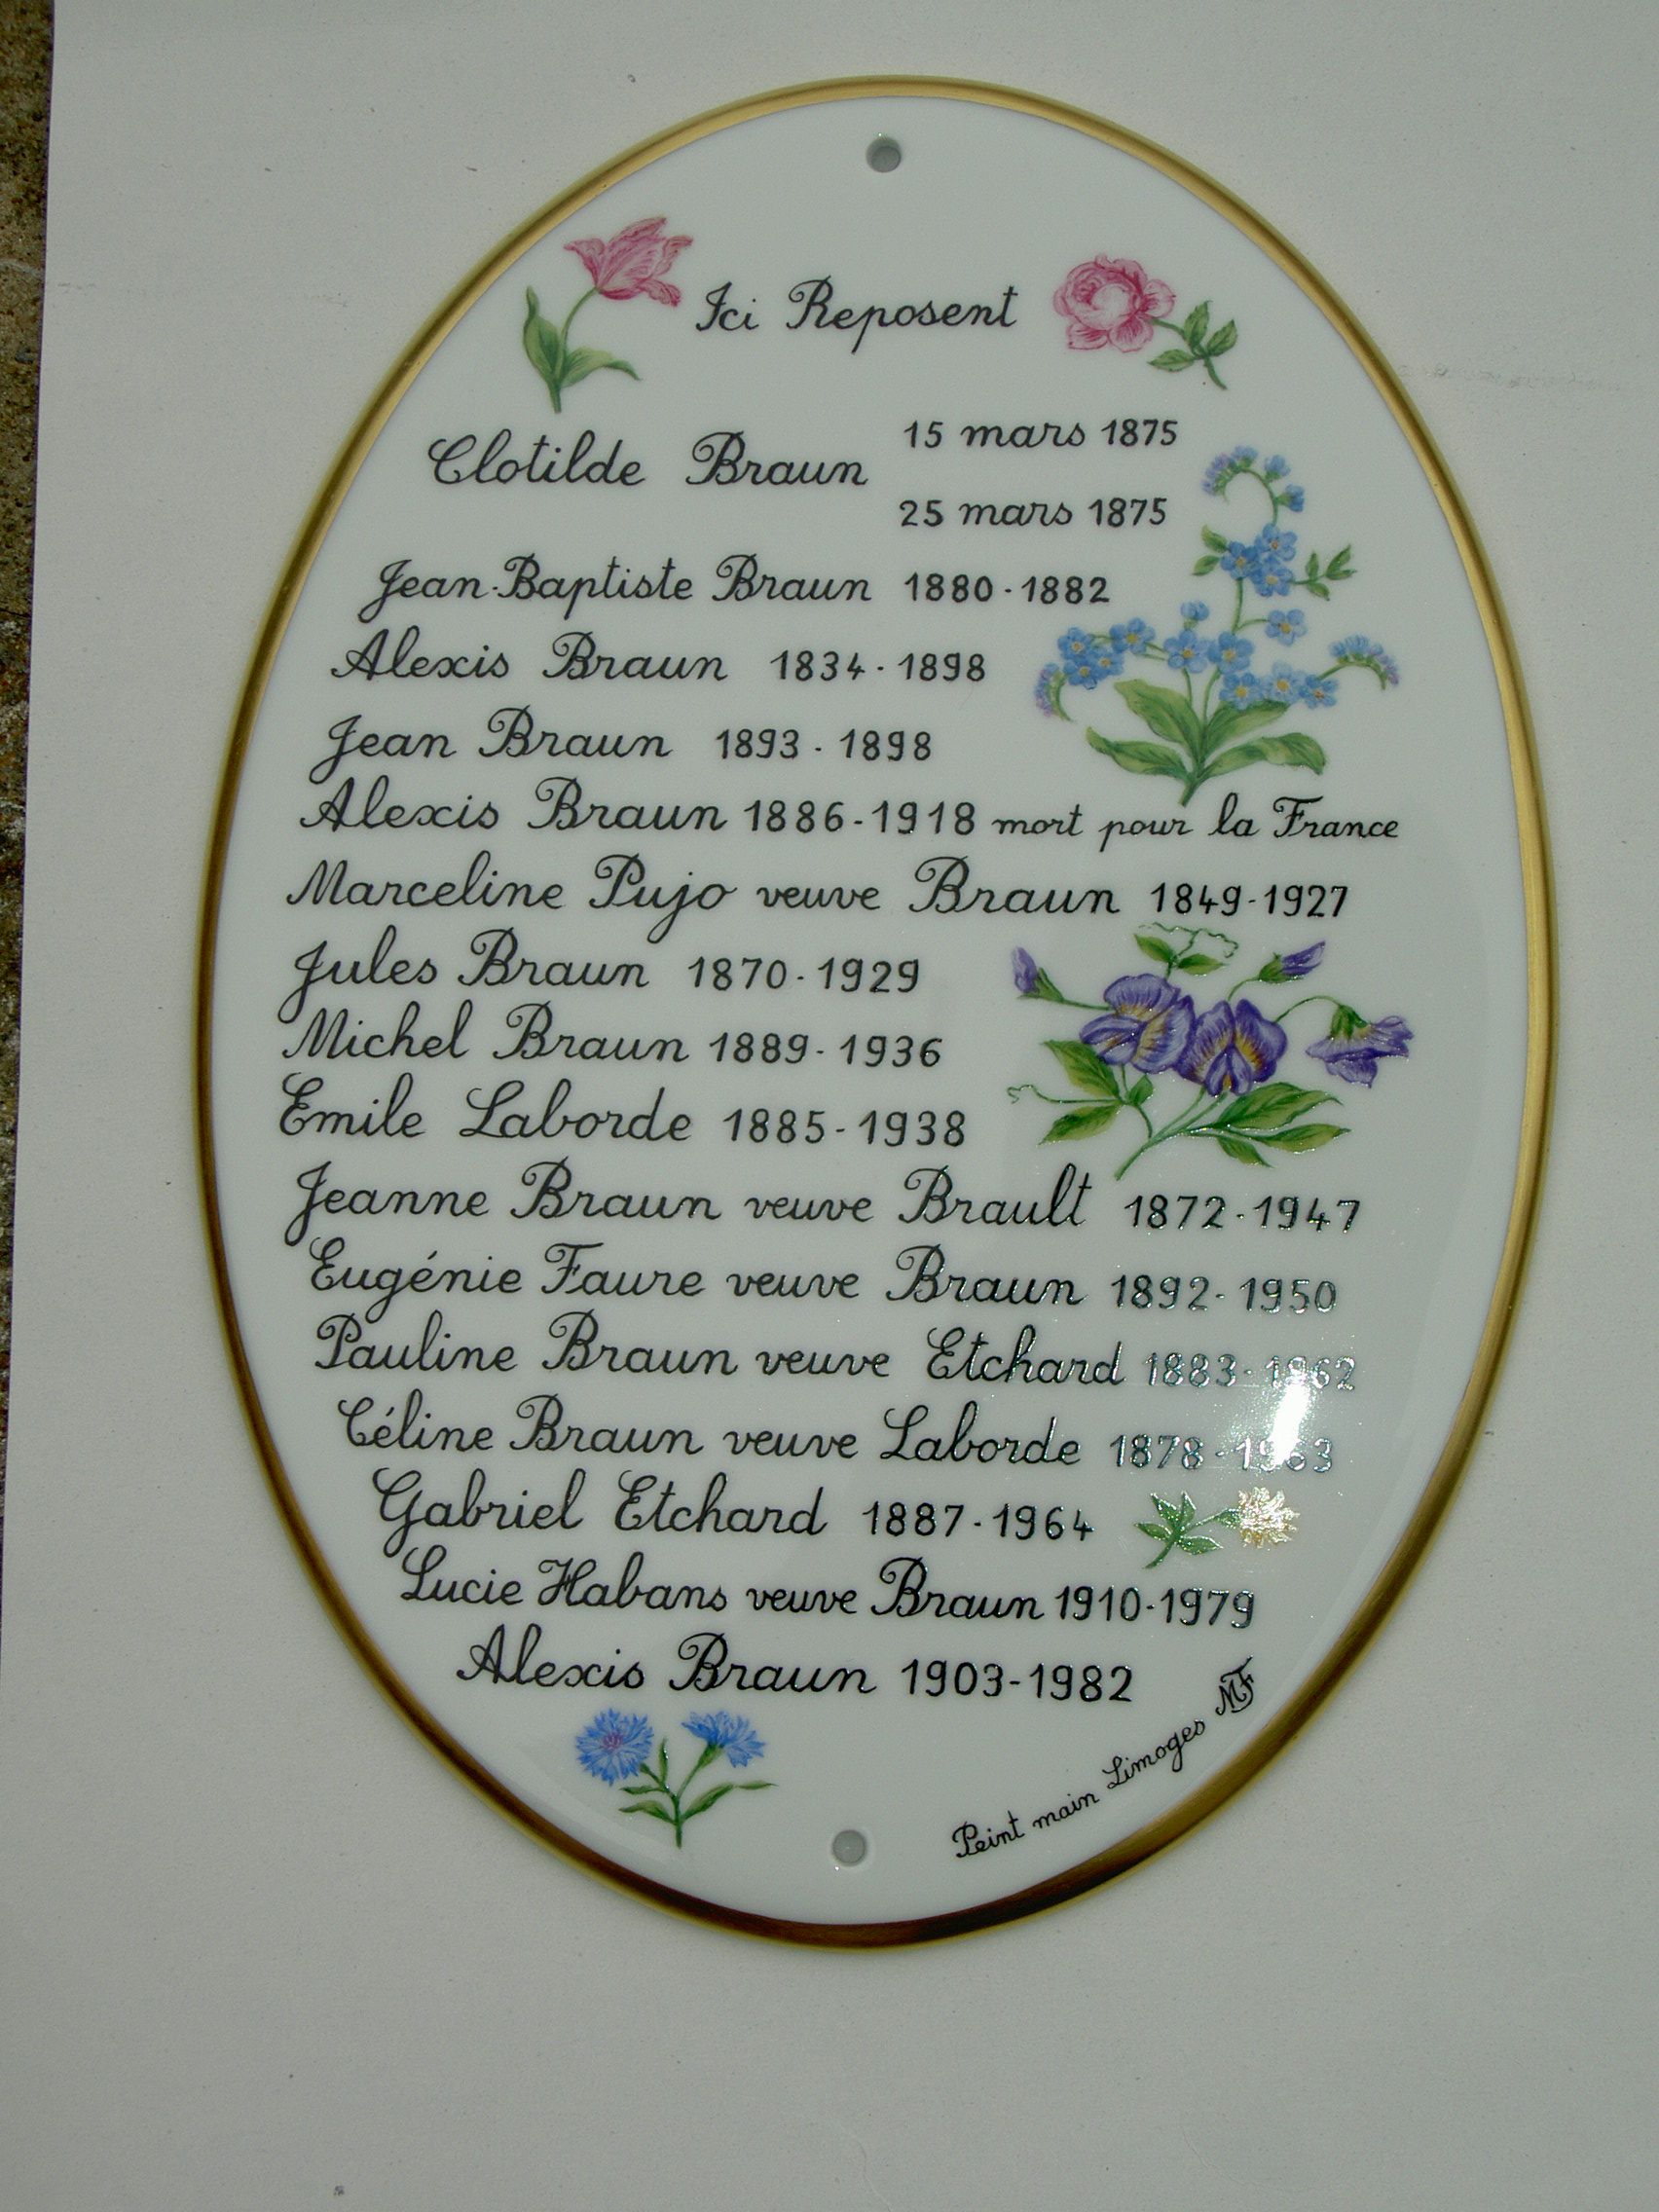 Ici Reposent
Clotilde Braun 15 mars 1875
25 mars 1875
Jean-Baptiste Braun 1880-1882
Alexis Braun 1834-1898
Jean Braun 1893-1898
Alexis Braun 1886-1918 mort pour la France
Marceline Pujo veuve Braun 1849-1927
Jules Braun 1870-1929
Michel Braun 1889-1936
Emile Laborde 1885-1938
Jeanne Braun veuve Brault 1872-1947
Eugénie Faure veuve Braun 1892-1950
Pauline Braun veuve Etchard 1883-1962
Céline Braun veuve Laborde 1878-1963
Gabriel Etchard 1887-1964
Lucie Habans veuve Braun 1910-1979
Alexis Braun 1903-1982
Peint main Limoges MF